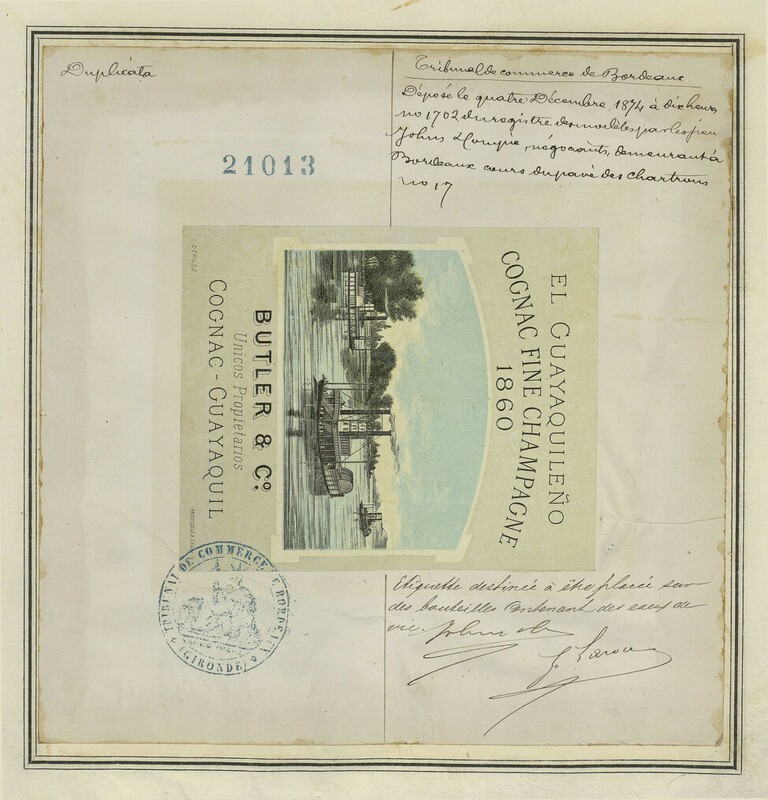 Duplicata
Tribunal de commerce de Bordeaux
Déposé le quatre Décembre 1874 à dix heures
no 1702 du registre des modèles par les sieurs
Johns & Compie, négociants, demeurant à
Bordeaux cours du pavé des Chartrons
no 17
21013
EL GUAYAQUILEÑO
COGNAC FINE CHAMPAGNE
1860
BUTLER & Co.
Unicos Propietarios
COGNAC - GUAYAQUIL
DÉPOSÉ
TRIBUNAL DE COMMERCE DE BORDEAUX
(GIRONDE)
Etiquette destinée à être placée sur
des bouteilles contenant des eaux de
vie. Johns